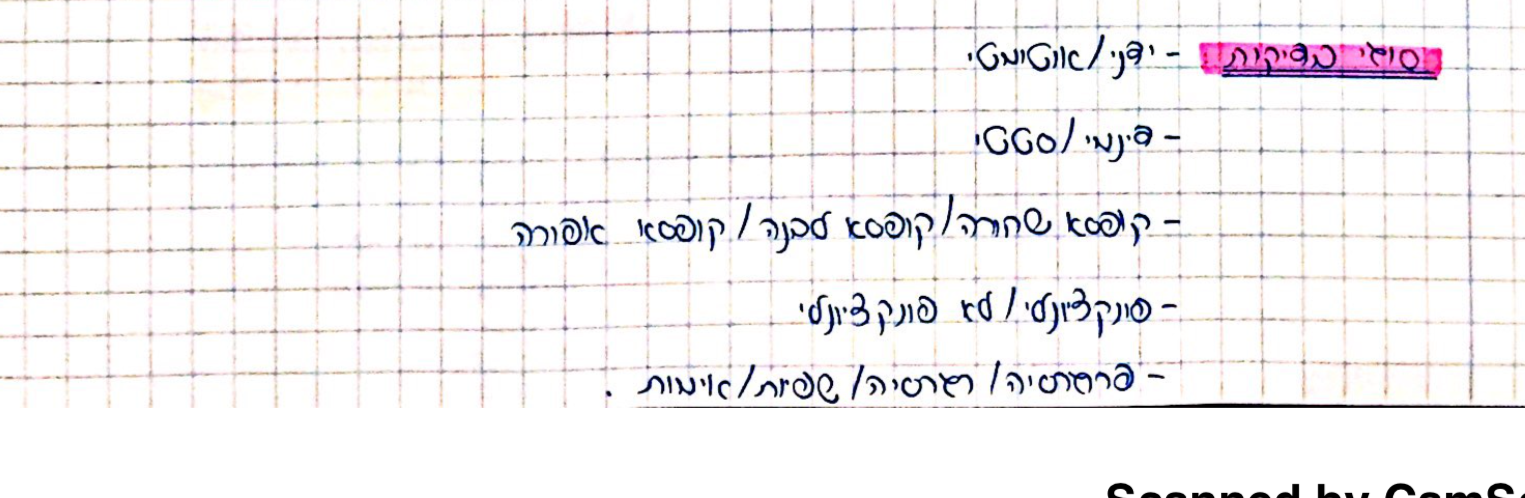 סוגי בדיקות - ידני/אוטומטי.
- דינמי/סטטי
- קופסא שחורה/קופסא לבנה/קופסא אפורה
- פונקציונלי/לא פונקציונלי
- פרוגרסיה/רגרסיה/שפיות/אימות.